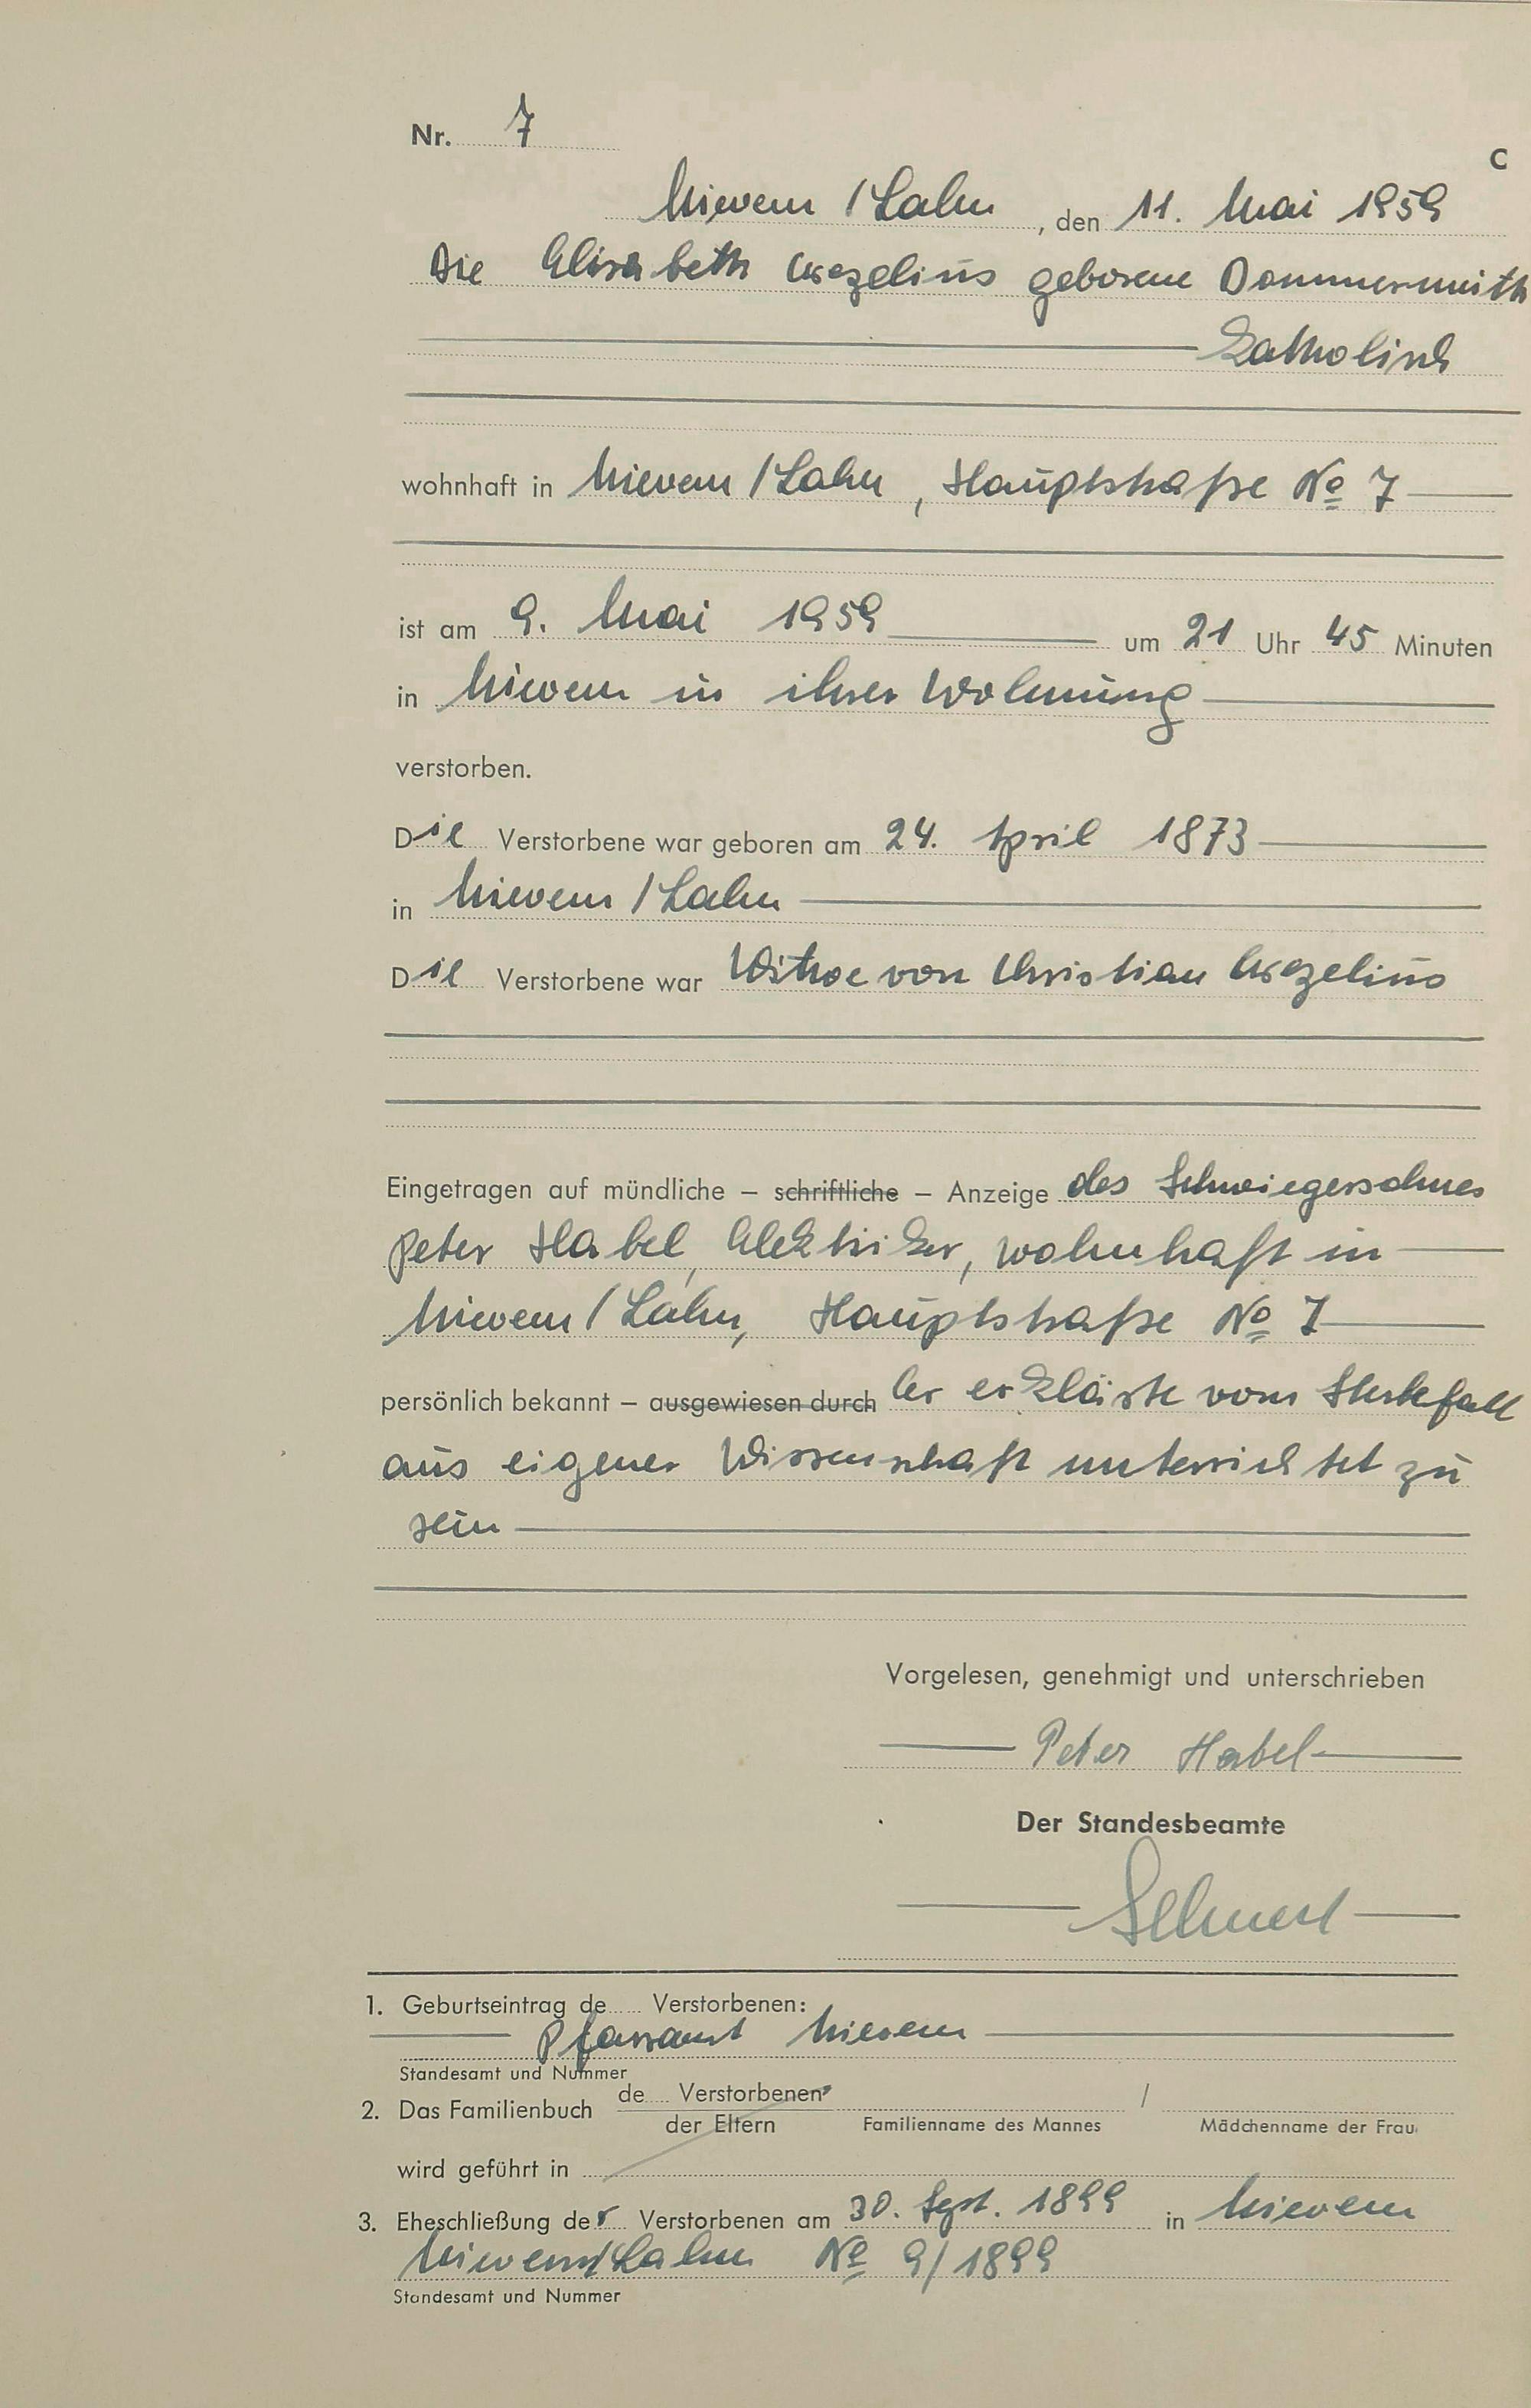 Nr. 7
C
Mievern / Lahn, den 11. Mai 1959
Die Elisabeth geborene Dommermuth
katholisch
wohnhaft in Mievern / Lahn, Hauptstraße No 7
ist am 9. Mai 1959 um 21 Uhr 45 Minuten
in Mievern in ihrer Wohnung
verstorben.
Die Verstorbene war geboren am 24. April 1873
in Mievern / Lahn
Die Verstorbene war Witwe von Christian
Eingetragen auf mündliche – schriftliche – Anzeige des Schwiegersohnes
Peter Habel, Elektriker, wohnhaft in
Mievern / Lahn, Hauptstraße No 7
persönlich bekannt – ausgewiesen durch Er erklärte vom Sterbefall
aus eigener Wissenschaft unterrichtet zu
sein
Vorgelesen, genehmigt und unterschrieben
Peter Habel
Der Standesbeamte
1. Geburtseintrag de Verstorbenen:
Pfarramt Mievern
Standesamt und Nummer
2. Das Familienbuch de Verstorbenen /
der Eltern Familienname des Mannes Mädchenname der Frau
wird geführt in
3. Eheschließung der Verstorbenen am 30. Sept. 1899 in Mievern
Mievern/Lahn No 9/1899
Standesamt und Nummer